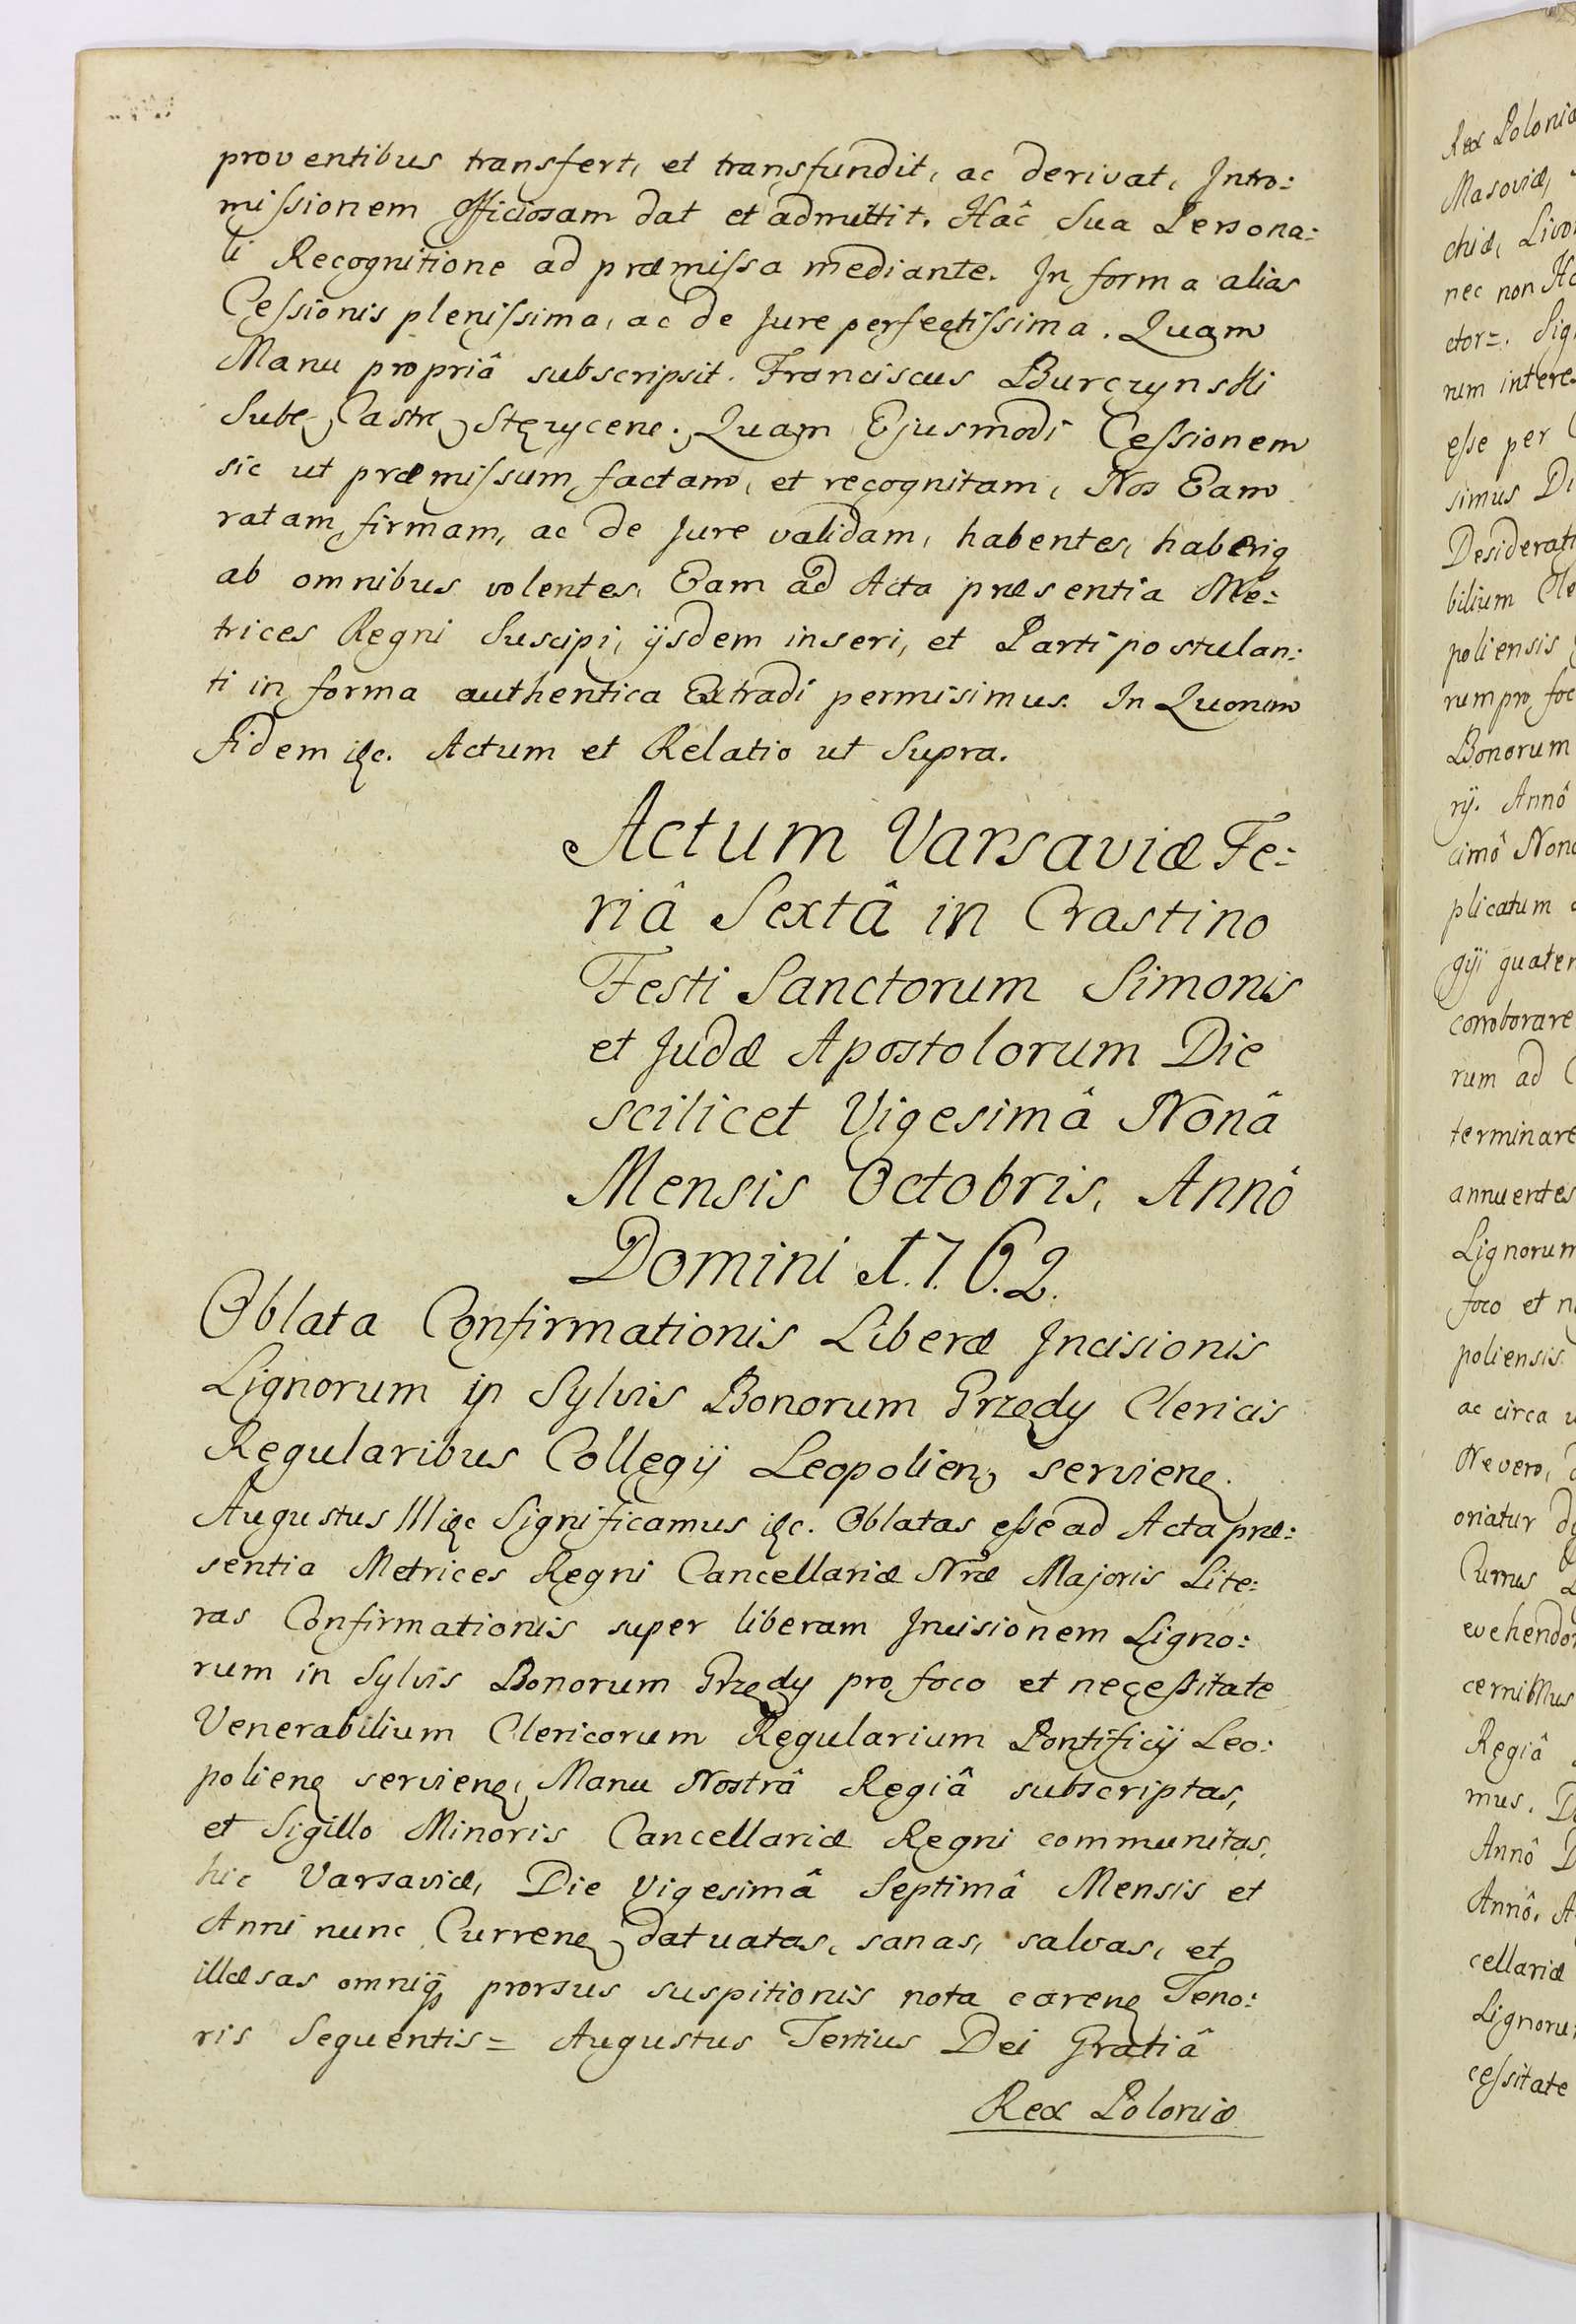 proventibus transfert, et transfundit, ac derivat, Intro:
missionem officiosam dat et admittit. Hâc Sua Persona:
li Recognitione ad præmissa mediante. In forma alias
Cessionis plenissima, ac de Jure perfectissima. Quam
Manu propriâ subscripsit. Franciscus Burczynski
Sube Castre Stęzycene. Quam Ejusmodi Cessionem
sic ut præmissum factam, et recognitam, Nos Eam
ratam firmam, ac de Jure validam, habentes, haberiq
ab omnibus volentes, Eam ad Acta præsentia Me:
trices Regni Suscipi, ijsdem inseri, et Parti postulan:
ti in forma authentica Extradi permisimus. In Quorum
Fidem &c. Actum et Relatio ut Supra.
Actum Varsaviæ Fe:
riâ Sextâ in Crastino
Festi Sanctorum Simonis
et Judæ Apostolorum Die
scilicet Vigesimâ Nonâ
Mensis Octobris, Annô
Domini 1.7.6.2.
Oblata Confirmationis Liberæ Incisionis
Lignorum in Sylvis Bonorum Grzędy Clericis
Regularibus Collegij Leopolien, serviene.
Augustus III &c Significamus &c. Oblatas esse ad Acta præ:
sentia Metrices Regni Cancellariæ Nræ Majoris Lite:
ras Confirmationis super liberam Incisionem Ligno:
rum in Sylvis Bonorum Grzędy pro foco et necessitate
Venerabilium Clericorum Regularium Pontificij Leo:
poliene serviene, Manu Nostrâ Regiâ subscriptas,
et Sigillo Minoris Cancellariæ Regni communitas,
hic Varsaviæ, Die Vigesimâ Septimâ Mensis et
Anni nunc Currene datuatas, sanas, salvas, et
illæsas omniq prorsus suspitionis nota carene Teno:
ris Sequentis= Augustus Tertius Dei Gratiâ
Rex Poloniæ
Rex Polonia
Masoviæ,
chiæ, Livo
nec non
etor=. Sig
rum intere
esse per
simus
Desiderat
bilium Cle
poliensis
rum pro foc
Bonorum
rij. Annô
cimô Non
plicatum
gij quaten
corroborare
rum ad
terminare
annuentes
Lignorum
foco et n
poliensis
ac circa
Ne vero,
oriatur
Currus
evehendo
cernimus
Regiâ
mus.
Annô D
Annô. A
cellariæ
Lignoru
cessitate